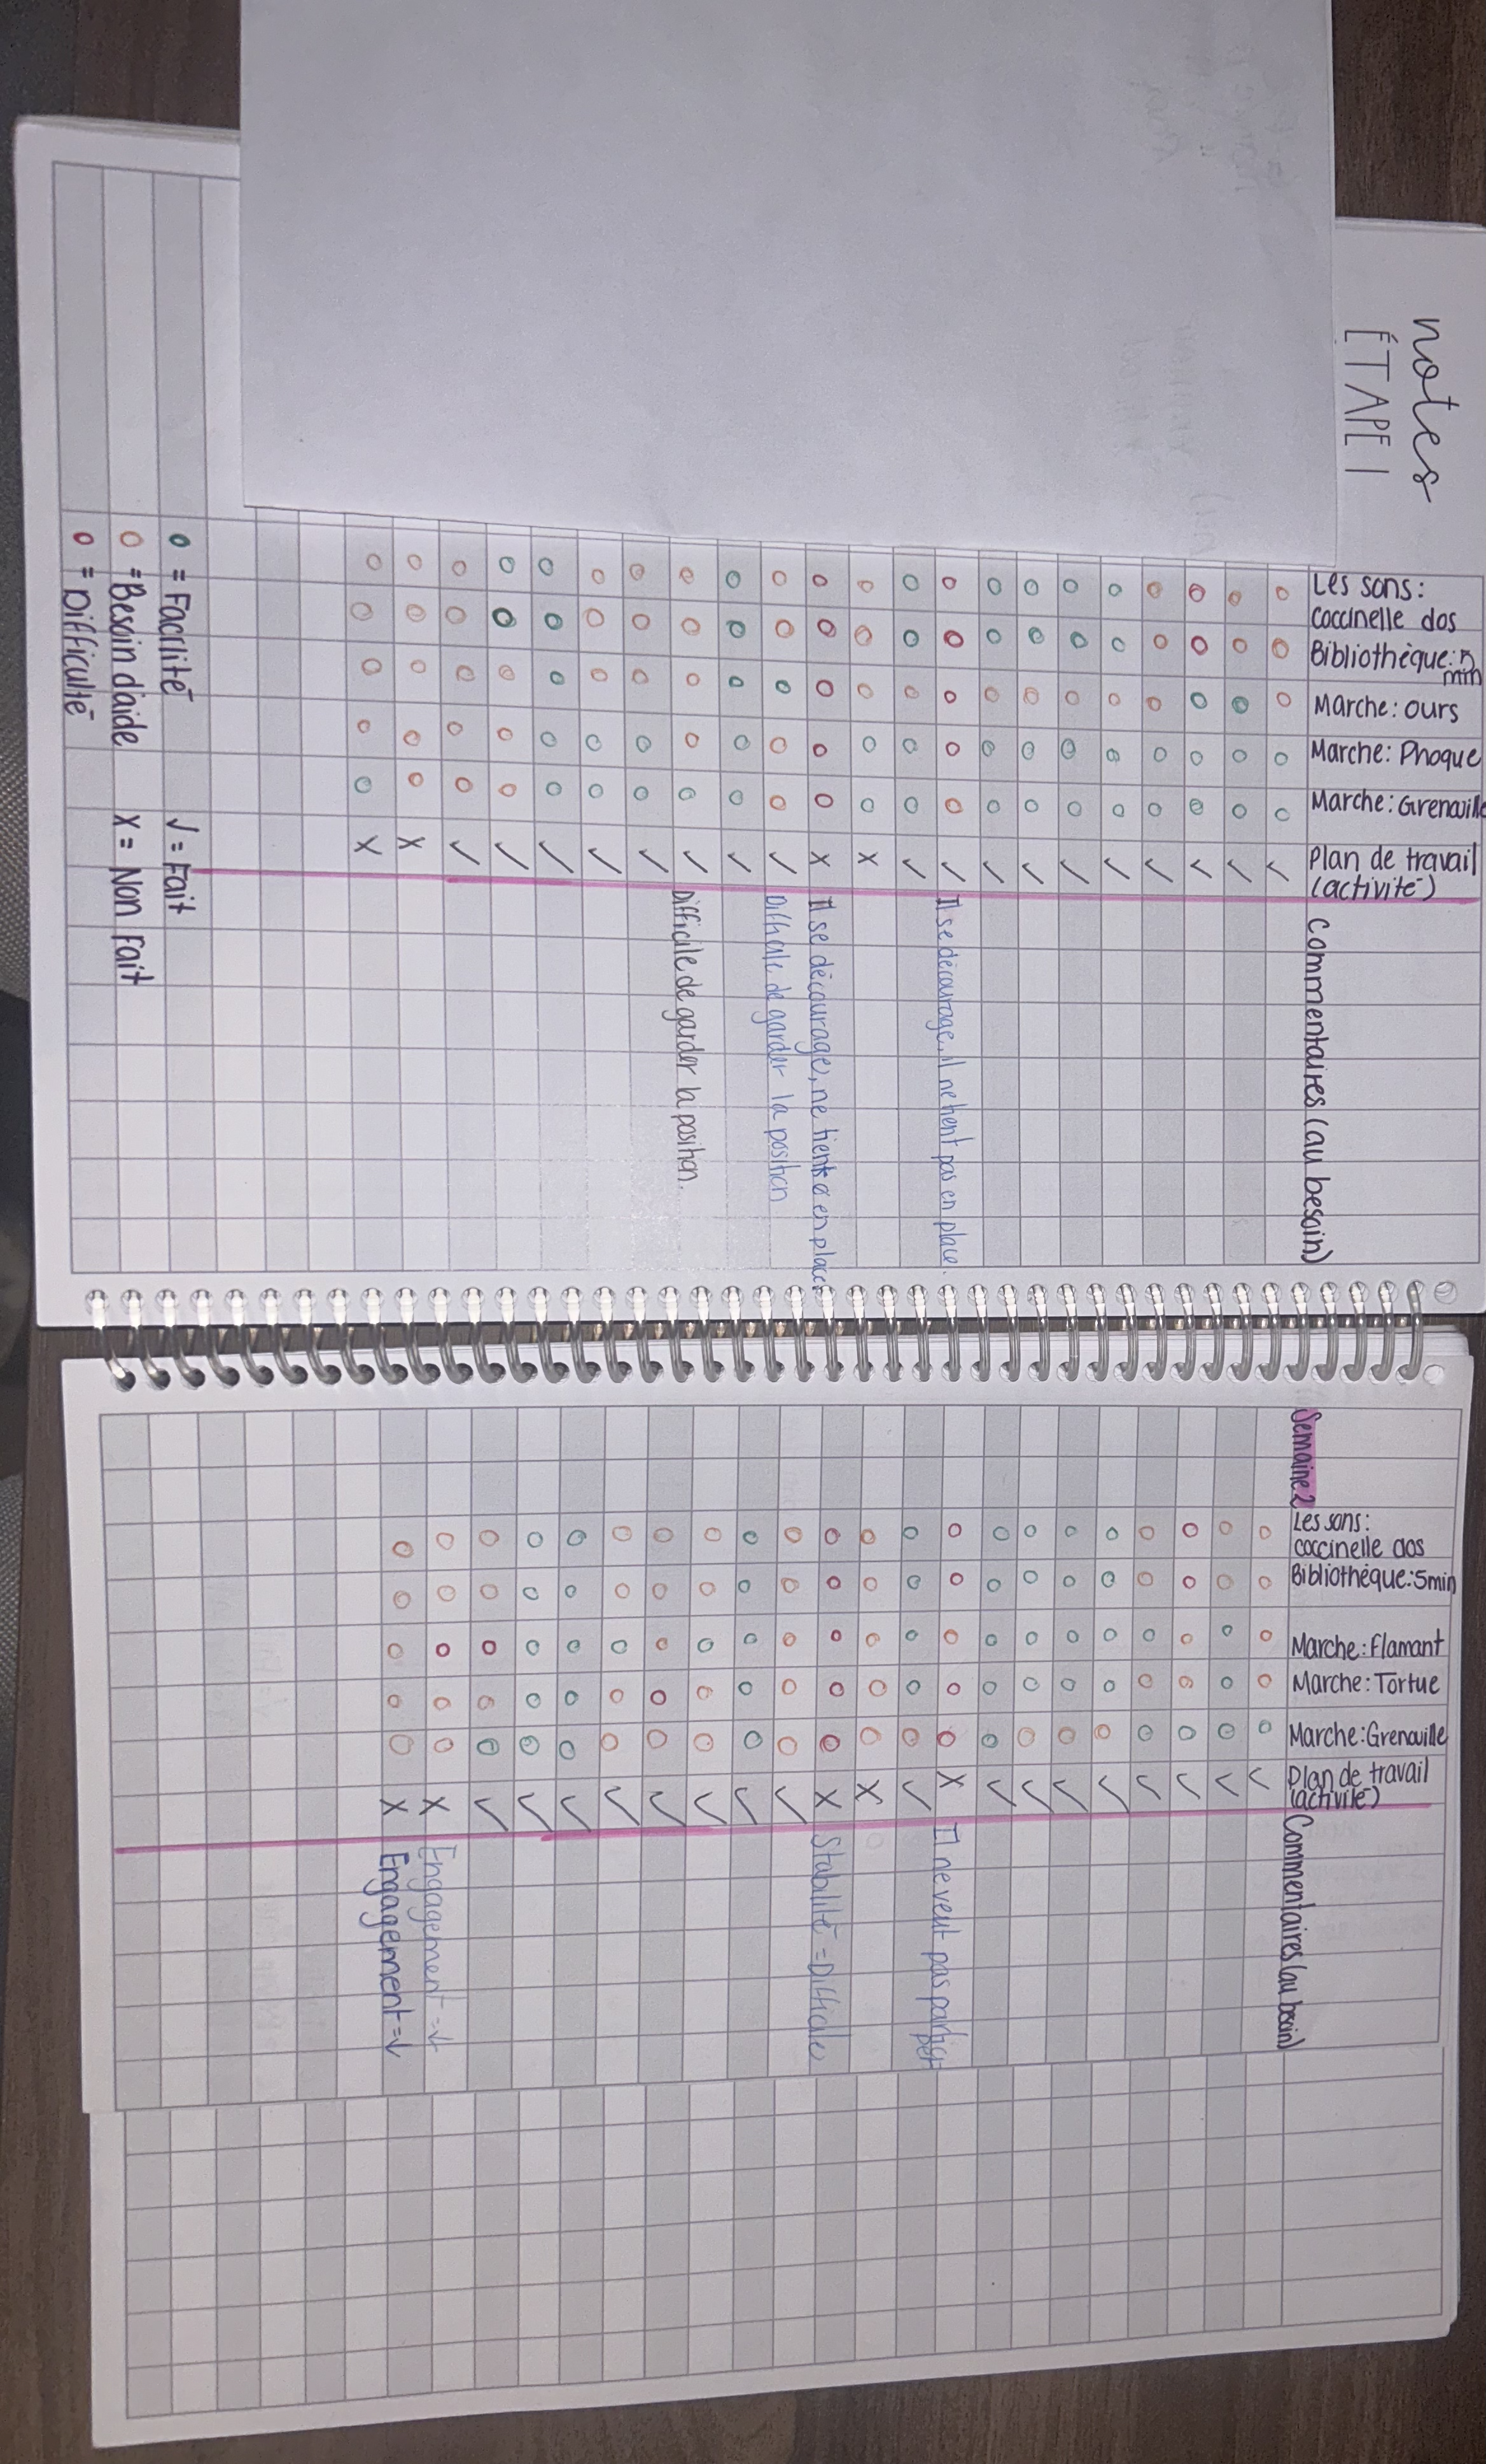 notes
ÉTAPE 1
Les sons:
coccinelle dos
Bibliothèque: 5
min
Marche: ours
Marche: Phoque
Marche: Grenouille
Plan de travail
(activité)
Commentaires (au besoin)
✓ ✓ ✓ ✓ ✓ ✓ ✓ ✓
✓ Il se décourage, il ne tient pas en place.
✓
X
X Il se décourage, ne tient en place
✓ Difficile de garder la position
✓
✓ Difficile de garder la position.
✓ ✓ ✓ ✓ ✓
X
X
o = Facilité
✓ = Fait
o = Besoin d'aide
X = Non Fait
o = Difficulté
Semaine 2
Les sons:
coccinelle dos
Bibliothèque: 5min
Marche: Flamant
Marche: Tortue
Marche: Grenouille
Plan de travail
(activité)
Commentaires (au besoin)
✓ ✓ ✓ ✓ ✓ ✓ ✓
X Il ne veut pas partici
per
✓
X
X Stabilité = Difficile
✓ ✓ ✓ ✓ ✓ ✓ ✓ ✓
X Engagement = ↓
X Engagement = ↓